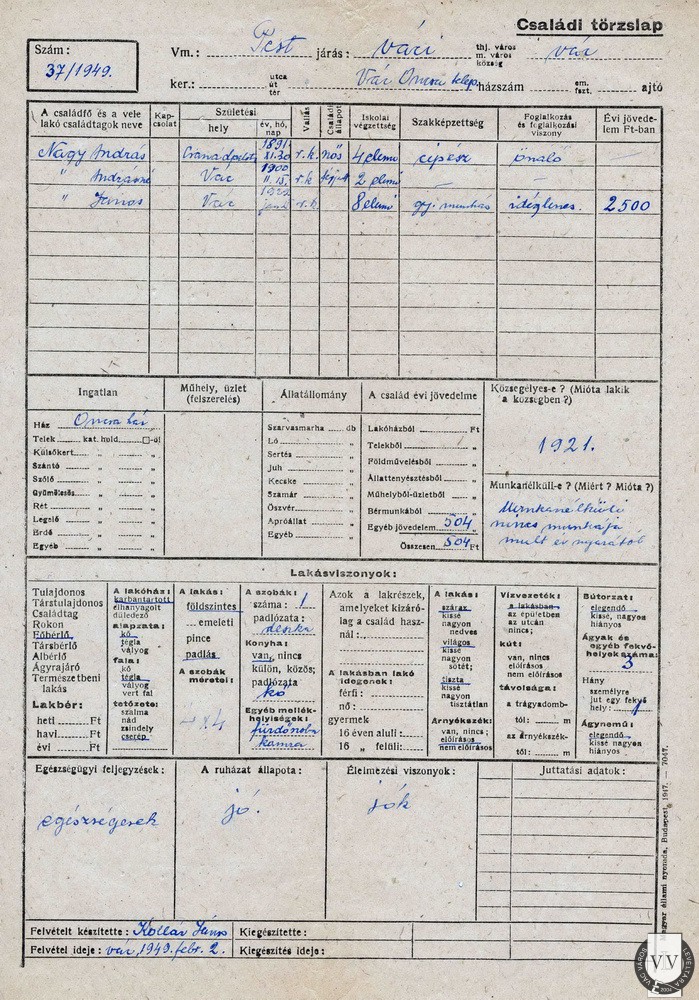 Családi törzslap
Szám :
37/1949.
Vm.: Pest járás : váci thj. város m. város község vác
ker.: utca út tér Vác Oncsa telep. házszám em. fszt. ajtó
A családfő és a vele lakó családtagok neve | Kapcsolat | Születési hely | év, hó, nap | Vallás | Családi állapot | Iskolai végzettség | Szakképzettség | Foglalkozás és foglalkozási viszony | Évi jövedelem Ft-ban
Nagy András 1891. XI.30 r.k. nős 4 elemi cipész önáló —
" Andrásné Vác 1900 II. 15. r.k 2 elemi — — —
" János Vác r.k. 8 elemi gy. munkás ideglenes. 2500
Ingatlan
Ház Oncsa ház
Telek kat. hold □-öl
Külsőkert "
Szántó "
Szőlő "
Gyümölcsös "
Rét "
Legelő "
Erdő "
Egyéb "
Műhely, üzlet (felszerelés)
Állatállomány
Szarvasmarha db
Ló "
Sertés "
Juh "
Kecske "
Szamár "
Öszvér "
Apróállat "
Egyéb "
A család évi jövedelme
Lakóházból Ft
Telekből "
Földművelésből "
Állattenyésztésből "
Műhelyből-üzletből "
Bérmunkából "
Egyéb jövedelem 504 "
Összesen 504 Ft
Községilyes-e ? (Mióta lakik a községben ?)
1921.
Munkanélküli-e ? (Miért ? Mióta ?)
Munkanélküli
nincs munkája
mult év nyarától
Lakásviszonyok :
Tulajdonos
Társtulajdonos
Családtag
Rokon
Főbérlő
Társbérlő
Albérlő
Ágyrajáró
Természetbeni lakás
Lakbér:
heti Ft
havi Ft
évi Ft
A lakóház:
karbantartott
elhanyagolt
düledező
alapzata:
kő
tégla
vályog
fala:
kő
tégla
vályog
vert fal
tetőzete:
szalma
nád
zsindely
cserép
A lakás :
földszintes
... emeleti
pince
padlás
A szobák méretei:
4x4
A szobák :
száma : 1
padlózata :
deszka
Konyha:
van, nincs
külön, közös;
padlózata
kő
Egyéb mellékhelyiségek :
fürdőszoba
kamra
Azok a lakrészek, amelyeket kizárólag a család használ :
A lakásban lakó idegenek :
férfi :
nő :
gyermek
16 éven aluli :
16 " felüli:
A lakás :
száraz
kissé
nagyon
nedves
világos
kissé
nagyon
sötét;
tiszta
kissé
nagyon
tisztátlan
Árnyékszék:
van, nincs ;
előírásos
nem előírásos
Vízvezeték :
a lakásban
az épületben
az utcán
nincs ;
kút:
van, nincs
előírásos
nem előírásos
távolsága:
a trágyadomb-
tól : m
az árnyékszék-
tól : m
Bútorzat:
elegendő
kissé, nagyon
hiányos
Ágyak és egyéb fekvőhelyek száma:
3
Hány személyre jut egy fekvőhely : 1
Ágynemű :
elegendő
kissé nagyon
hiányos
Egészségügyi feljegyzések :
egészségesek
A ruházat állapota :
jó.
Élelmezési viszonyok :
jók
Juttatási adatok :
Felvételt készítette : Kollár János
Felvétel ideje : vác, 1949. febr. 2.
Kiegészítette :
Kiegészítés ideje :
állami nyomda, Budapest, 1947. — 7047.
VÁC VÁROS LEVÉLTÁRA
VV
2004